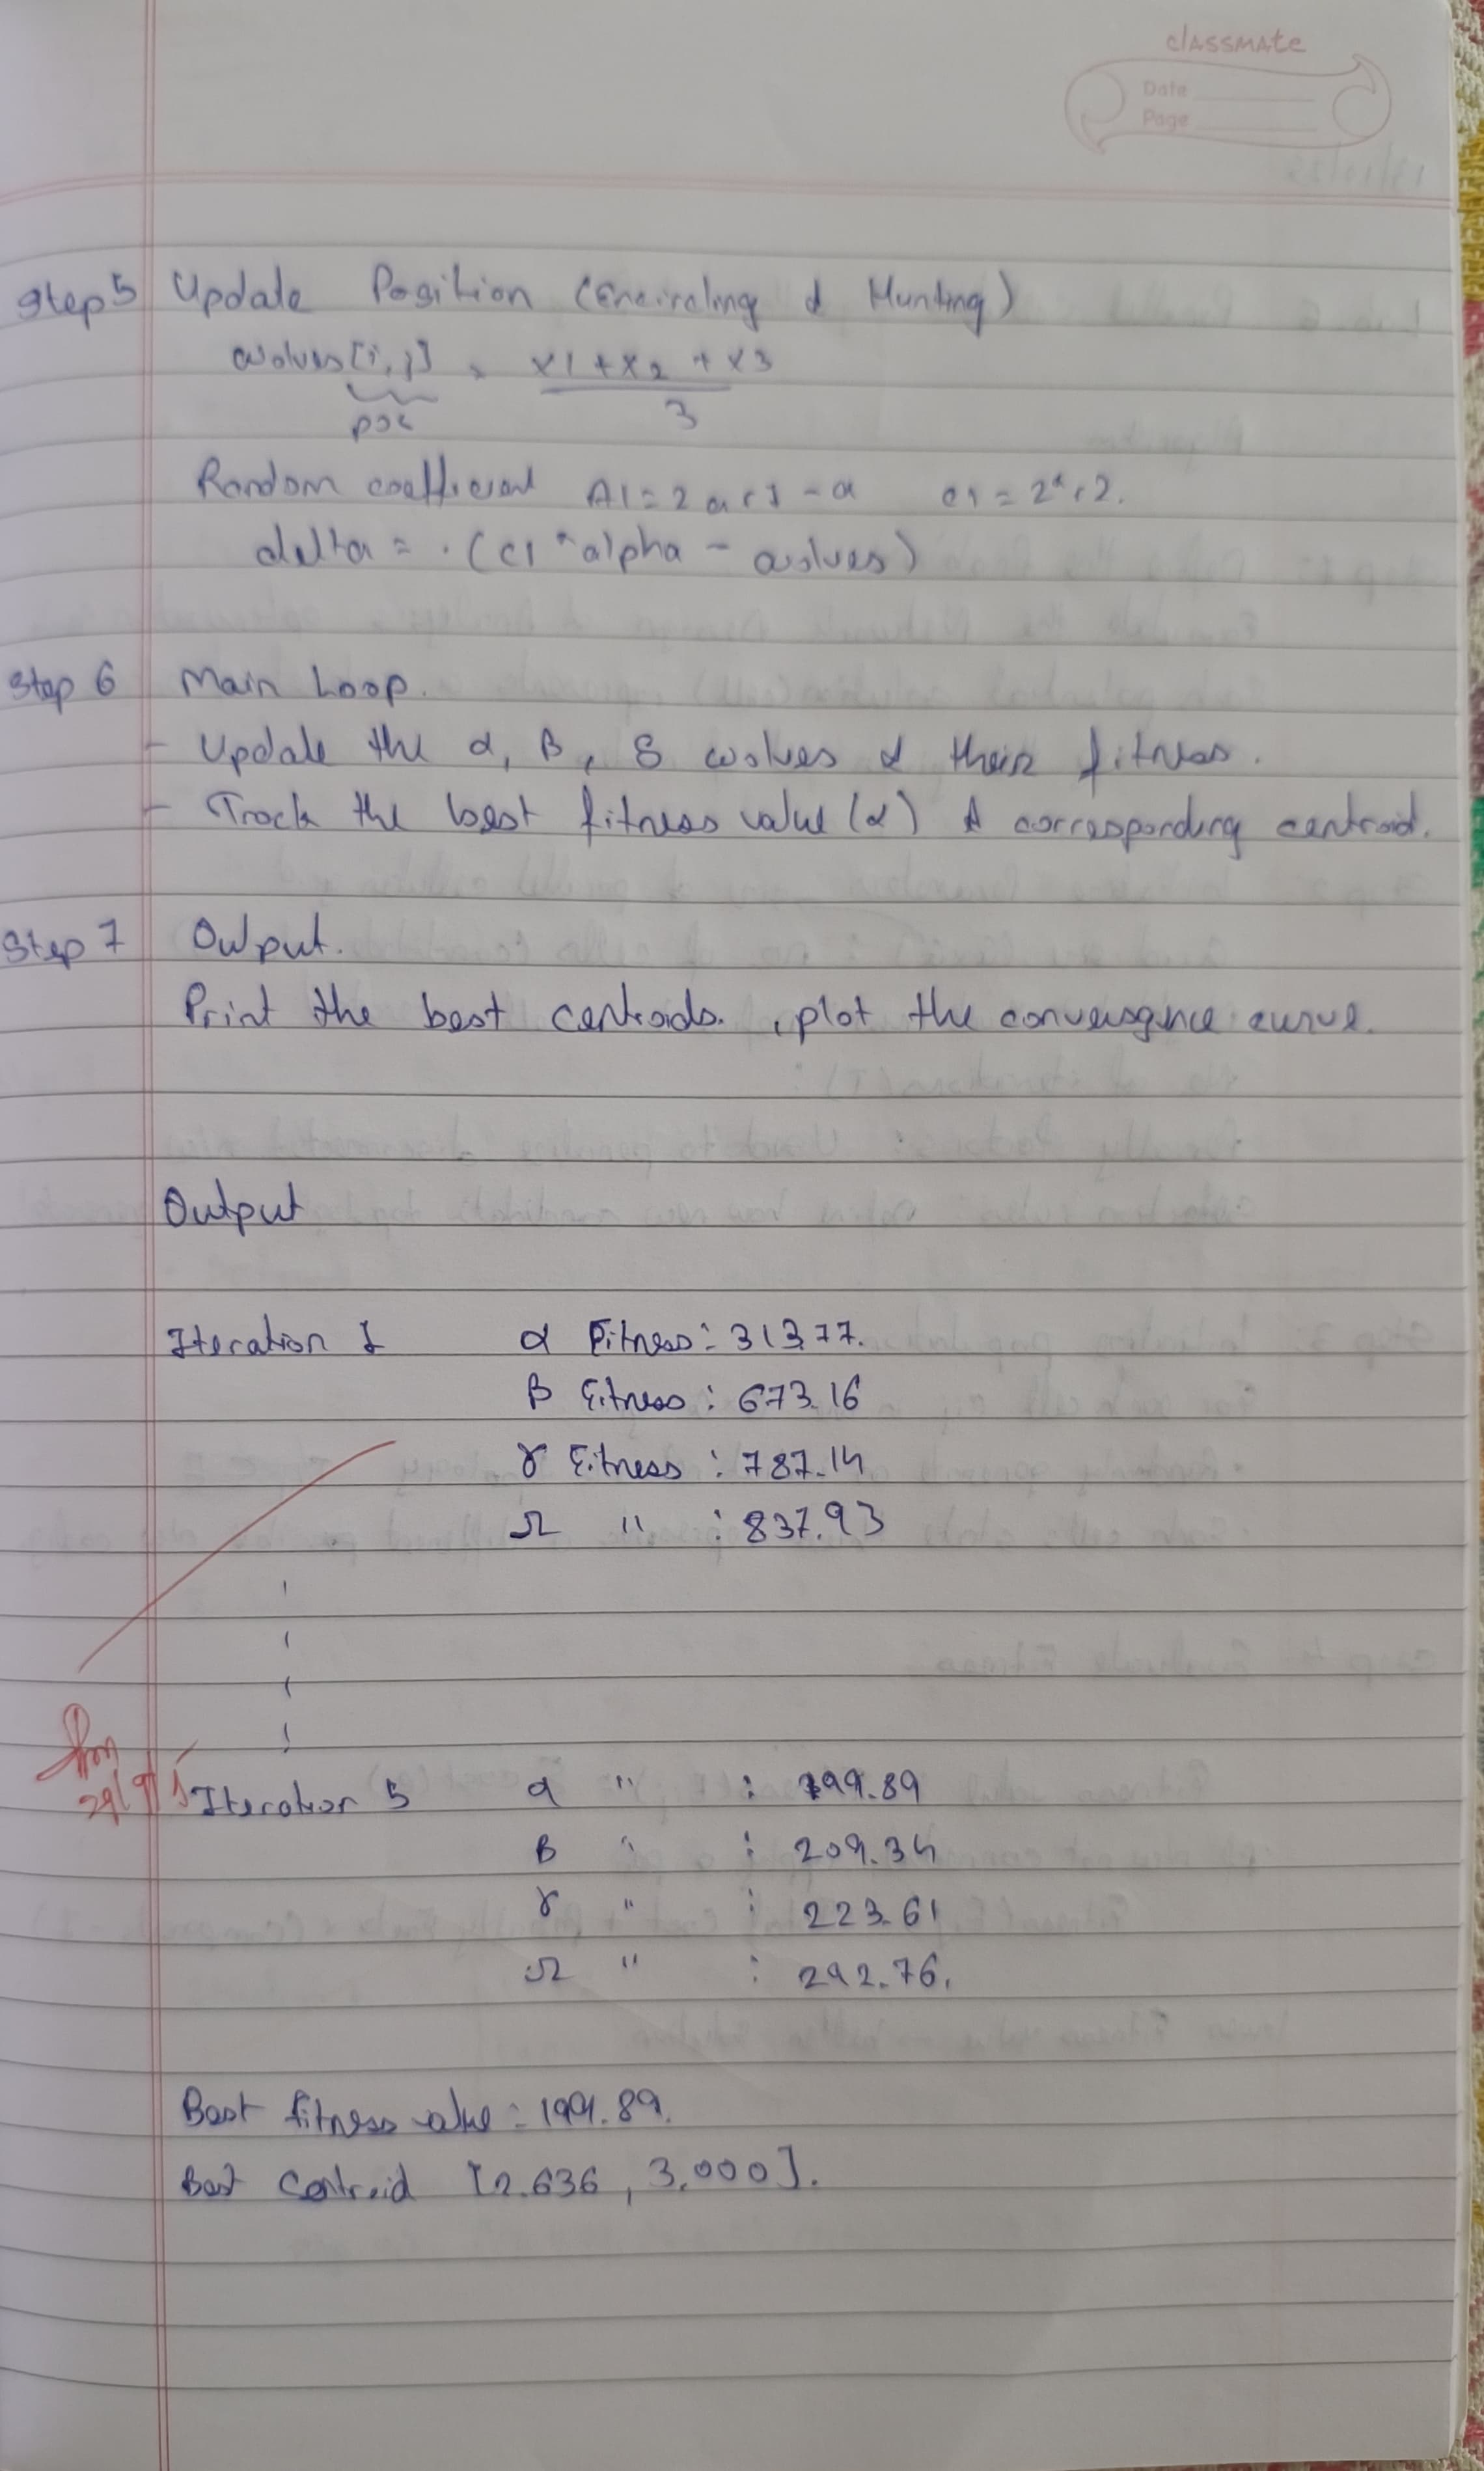 classmate
Date
Page
Step 5 Update Position (Encircling & Hunting)
wolves[i,j] = x1 + x2 + x3
pos 3
Random coefficient A1 = 2ar1 - a c1 = 2*r2.
delta = (c1*alpha - wolves)
Step 6 Main Loop.
- Update the α, β, δ wolves & their fitness.
- Track the best fitness value (α) & corresponding centroid.
Step 7 Output.
Print the best centroids, plot the convergence curve.
Output
Iteration 1 α Fitness: 313.77.
β Fitness: 673.16
γ Fitness: 787.14
Ω " : 837.93
Iteration 5 α " : 199.89
β " : 209.34
γ " : 223.61
Ω " : 292.76.
Best fitness value: 199.89.
Best Centroid [2.636, 3.000].